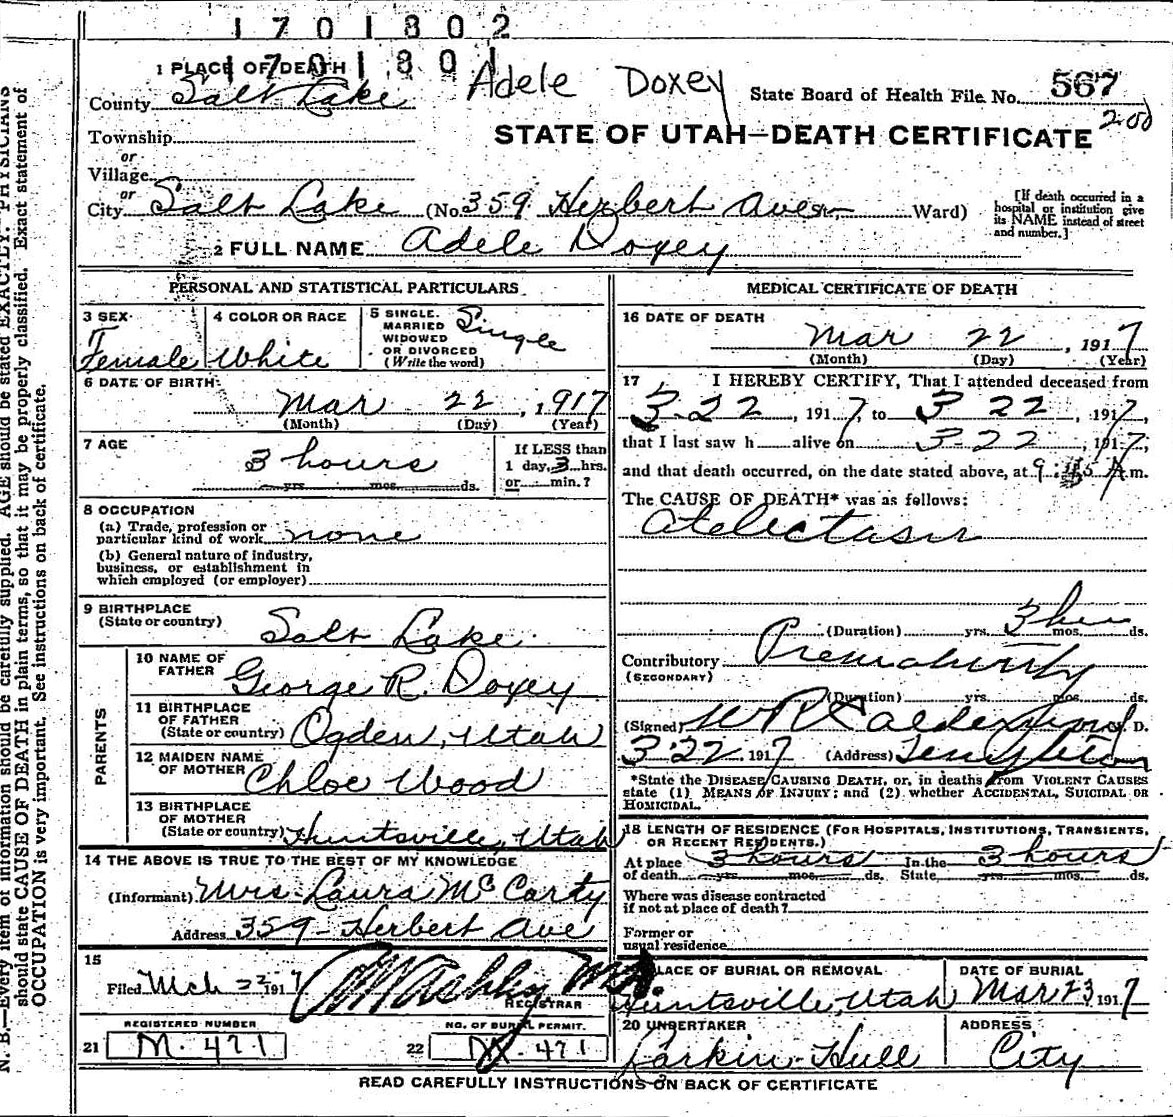 1701802
1701801
1 PLACE OF DEATH
Adele Doxey
County Salt Lake
State Board of Health File No. 567
200
Township
STATE OF UTAH—DEATH CERTIFICATE
or
Village
or
City Salt Lake (No. 359 Herbert Ave. Ward)
[If death occurred in a hospital or institution give its NAME instead of street and number.]
2 FULL NAME Adele Doxey
PERSONAL AND STATISTICAL PARTICULARS
3 SEX Female
4 COLOR OR RACE White
5 SINGLE. MARRIED WIDOWED OR DIVORCED (Write the word) Single
6 DATE OF BIRTH
Mar 22, 1917
(Month) (Day) (Year)
7 AGE
3 hours
yrs. mos. ds.
If LESS than
1 day, 3 hrs.
or min.?
8 OCCUPATION
(a) Trade, profession or
particular kind of work none
(b) General nature of industry,
business, or establishment in
which employed (or employer)
9 BIRTHPLACE
(State or country) Salt Lake
PARENTS
10 NAME OF
FATHER George R. Doxey
11 BIRTHPLACE
OF FATHER
(State or country) Ogden, Utah
12 MAIDEN NAME
OF MOTHER Chloe Wood
13 BIRTHPLACE
OF MOTHER
(State or country) Huntsville, Utah
14 THE ABOVE IS TRUE TO THE BEST OF MY KNOWLEDGE
(Informant) Mrs. Laura McCarty
Address 359 Herbert Ave
15
Filed Mch 22 1917
REGISTRAR
REGISTERED NUMBER
21 M. 471
NO. OF BURIAL PERMIT.
22 M. 471
MEDICAL CERTIFICATE OF DEATH
16 DATE OF DEATH
Mar 22, 1917
(Month) (Day) (Year)
17 I HEREBY CERTIFY, That I attended deceased from
3-22, 1917, to 3 22, 1917,
that I last saw h alive on 3-22, 1917,
and that death occurred, on the date stated above, at 9:45 A m.
The CAUSE OF DEATH* was as follows:
Atelectasis
(Duration) yrs. 3 hrs mos. ds.
Contributory Prematurity
(SECONDARY)
(Duration) yrs. mos. ds.
(Signed) M. D.
3-22 1917 (Address) Templeton
*State the DISEASE CAUSING DEATH, or, in deaths from VIOLENT CAUSES
state (1) MEANS OF INJURY; and (2) whether ACCIDENTAL, SUICIDAL OR
HOMICIDAL.
18 LENGTH OF RESIDENCE (FOR HOSPITALS, INSTITUTIONS, TRANSIENTS,
OR RECENT RESIDENTS.)
At place 3 hours In the 3 hours
of death yrs. mos. ds. State yrs. mos. ds.
Where was disease contracted
if not at place of death?
Former or
usual residence
PLACE OF BURIAL OR REMOVAL
Huntsville, Utah
DATE OF BURIAL
Mar 23 1917
20 UNDERTAKER
Larkin-Hull
ADDRESS
City
READ CAREFULLY INSTRUCTIONS ON BACK OF CERTIFICATE
N. B.—Every item of information should be carefully supplied. AGE should be stated EXACTLY. PHYSICIANS
should state CAUSE OF DEATH in plain terms, so that it may be properly classified. Exact statement of
OCCUPATION is very important. See instructions on back of certificate.